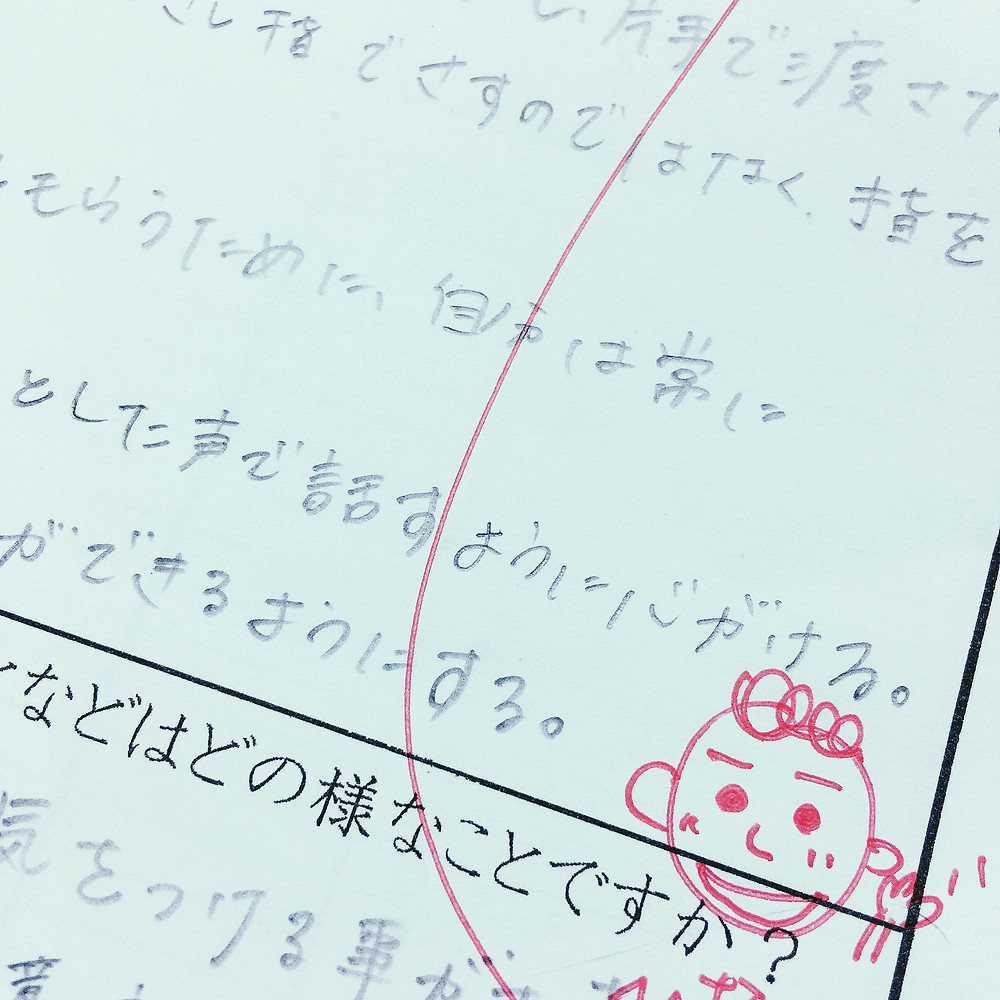 し、片手で渡さ
さし指でさすのではなく、指を
もらうために、自分は常に
とした声で話すように心がける。
ができるようにする。
などはどの様なことですか？
気をつける事が